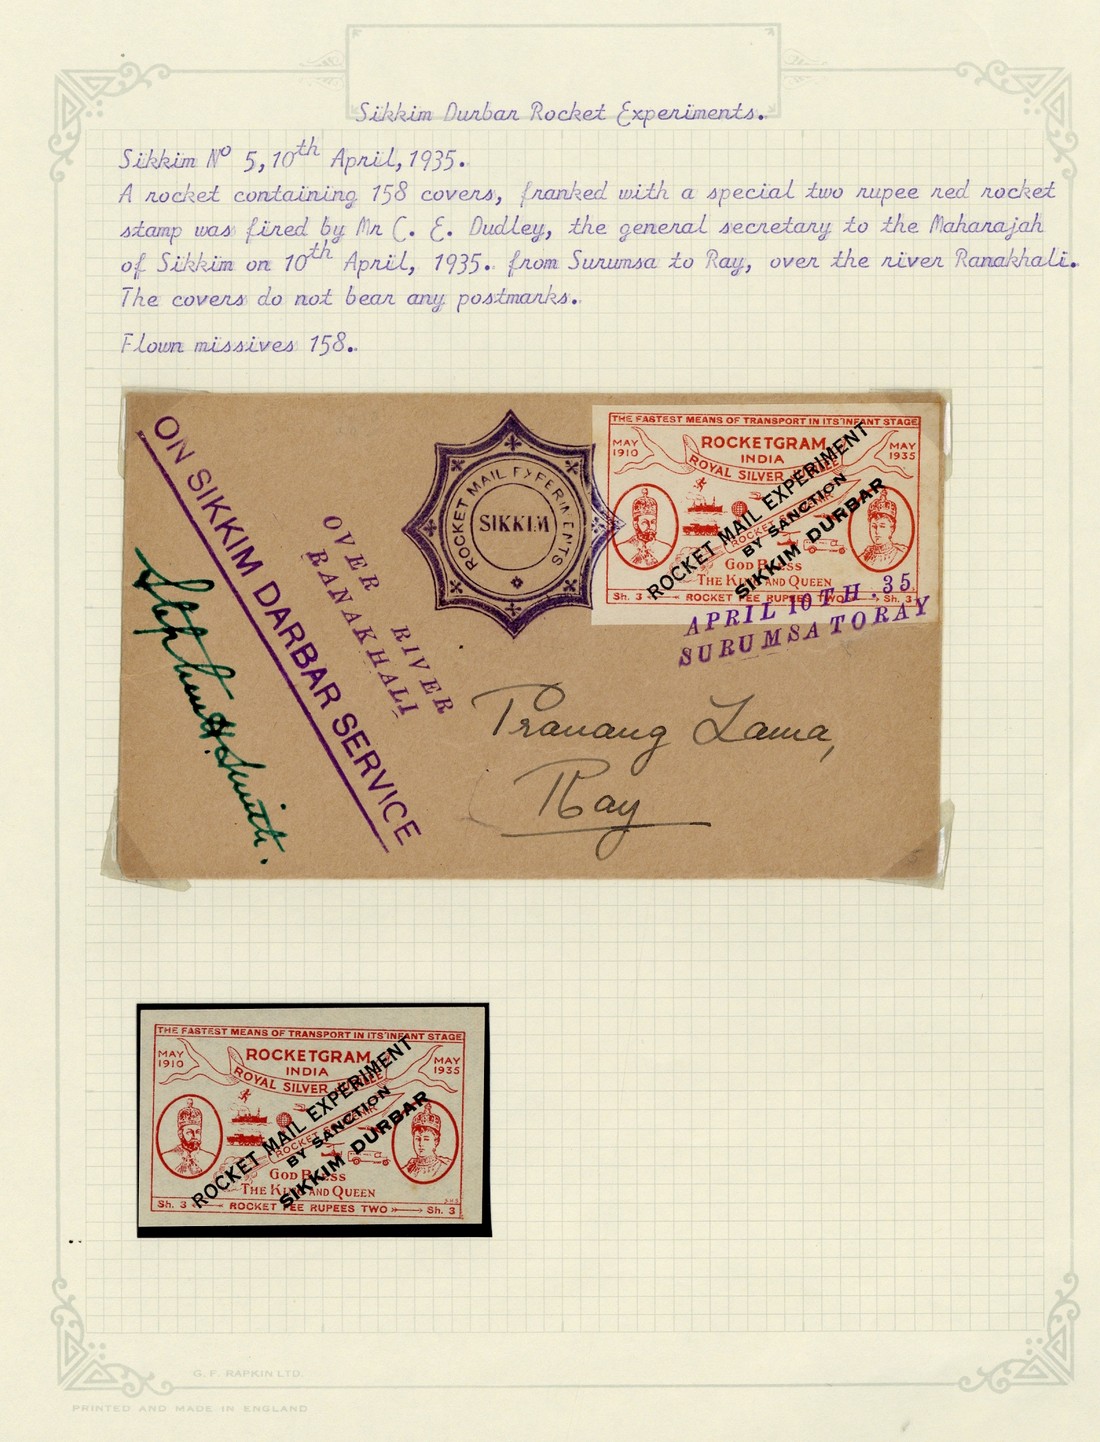 Sikkim Durbar Rocket Experiments.
Sikkim Nº 5, 10th April, 1935.
A rocket containing 158 covers, franked with a special two rupee red rocket
stamp was fired by Mr C. E. Dudley, the general secretary to the Maharajah
of Sikkim on 10th April, 1935. from Surumsa to Ray, over the river Ranakhali.
The covers do not bear any postmarks.
Flown missives 158.
ON SIKKIM DARBAR SERVICE
Stephen H. Smith.
OVER RIVER
RANAKHALI
ROCKET MAIL EXPERIMENTS
SIKKIM
THE FASTEST MEANS OF TRANSPORT IN ITS INFANT STAGE
MAY 1910
ROCKETGRAM
INDIA
ROYAL SILVER
MAY 1935
ROCKET MAIL EXPERIMENT
BY SANCTION
SIKKIM DURBAR
GOD BLESS
THE KING AND QUEEN
Sh. 3 ROCKET FEE RUPEES TWO Sh. 3
APRIL 10TH.35.
SURUMSA TO RAY
Pranang Lama,
Ray
THE FASTEST MEANS OF TRANSPORT IN ITS INFANT STAGE
MAY 1910
ROCKETGRAM
INDIA
ROYAL SILVER
MAY 1935
ROCKET MAIL EXPERIMENT
BY SANCTION
SIKKIM DURBAR
GOD BLESS
THE KING AND QUEEN
Sh. 3 ROCKET FEE RUPEES TWO Sh. 3
G. F. RAPKIN LTD.
PRINTED AND MADE IN ENGLAND